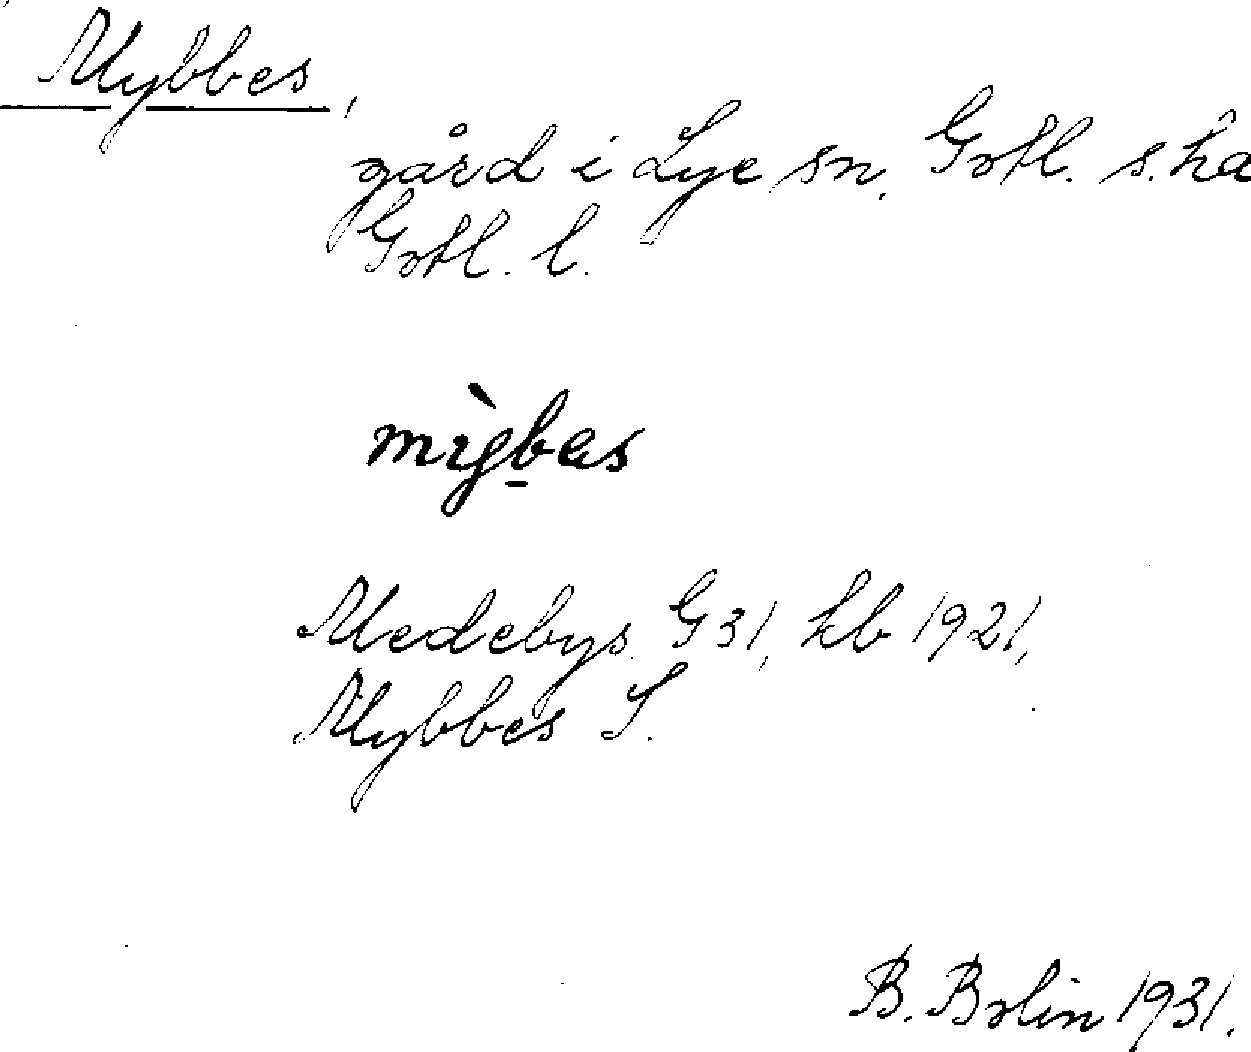 Mybbes,
gård i Lye sn, Gotl. s. hd
Gotl. l.
mỳb̲æs
Medebys G 31, kb 1921,
Mybbes S.
B. Bolin 1931.